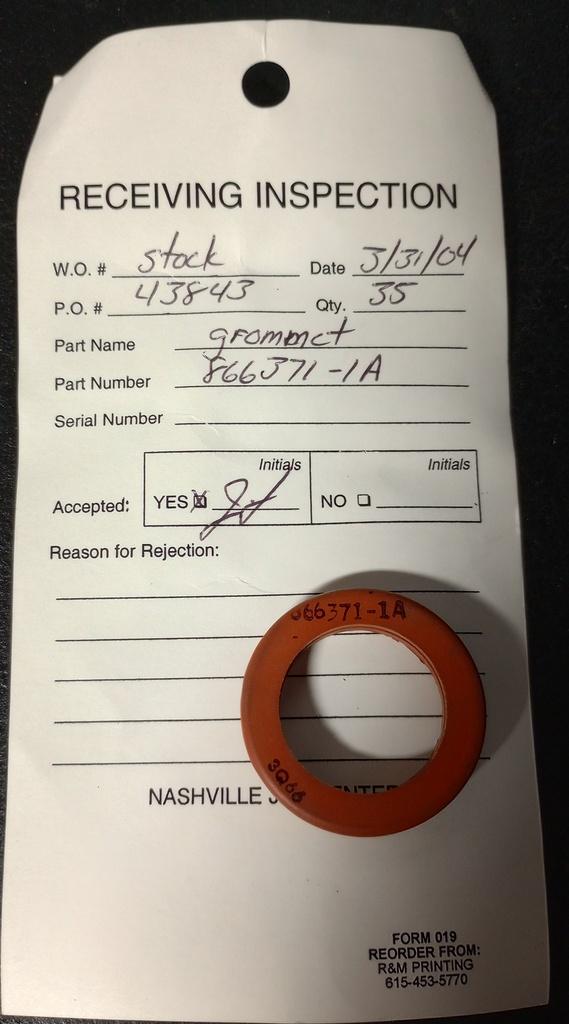 RECEIVING INSPECTION
W.O. # stock Date 3/31/04
P.O. # 43843 Qty. 35
Part Name grommet
Part Number 866371-1A
Serial Number
Initials Initials
Accepted: YES NO
Reason for Rejection:
866371-1A
3Q66
NASHVILLE
FORM 019
REORDER FROM:
R&M PRINTING
615-453-5770